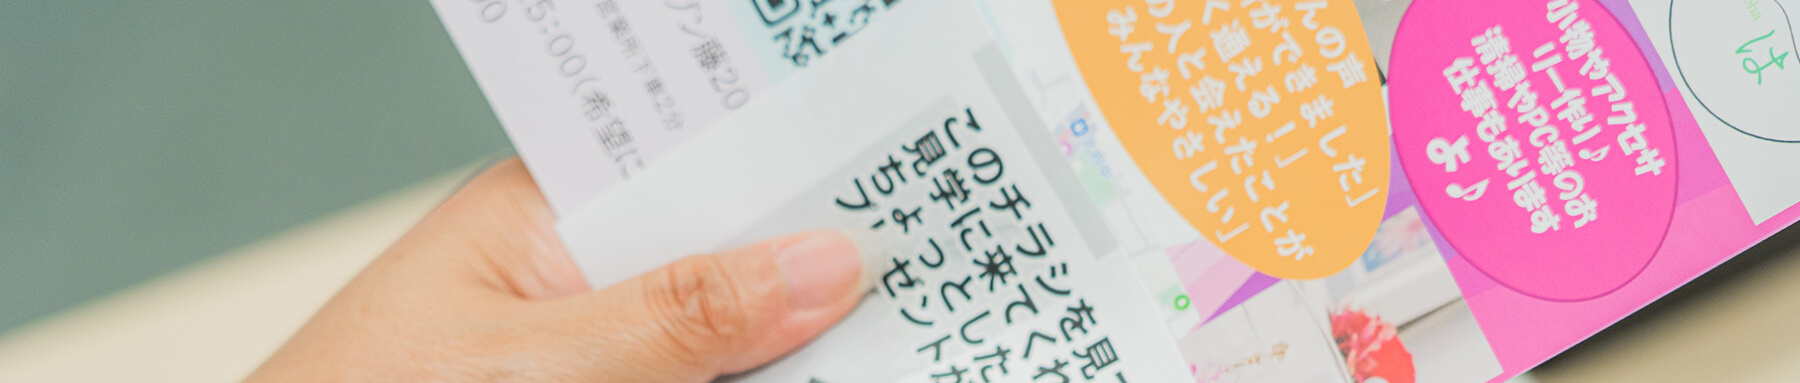 5:00(希望に
営業所下車2分
ゾン藤20
このチラシを見
見学に来てくわ
ちょっとした
プ ゼント
んの声
ができました」
く通える！」
の人と会えたことが
みんなやさしい」
小物やアクセサ
リー作り♪
清掃やPC等のお
仕事もあります
よ♪
は